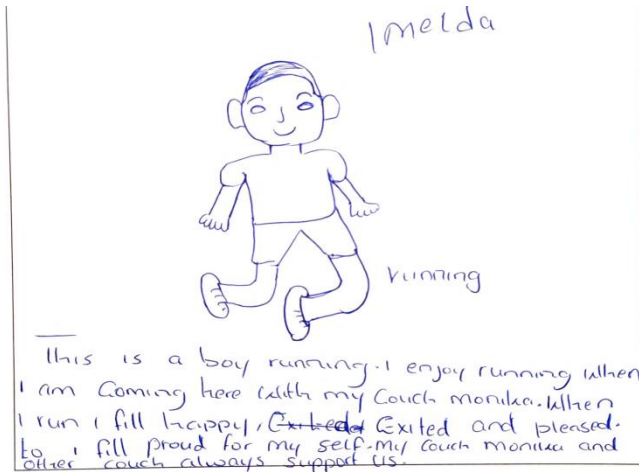 Imelda
running
This is a boy running. I enjoy running when
I am Coming here with my Couch monika. When
I run I fill happy, Exited and pleased.
to I fill proud for my self. my Couch monika and
other couch always support us.